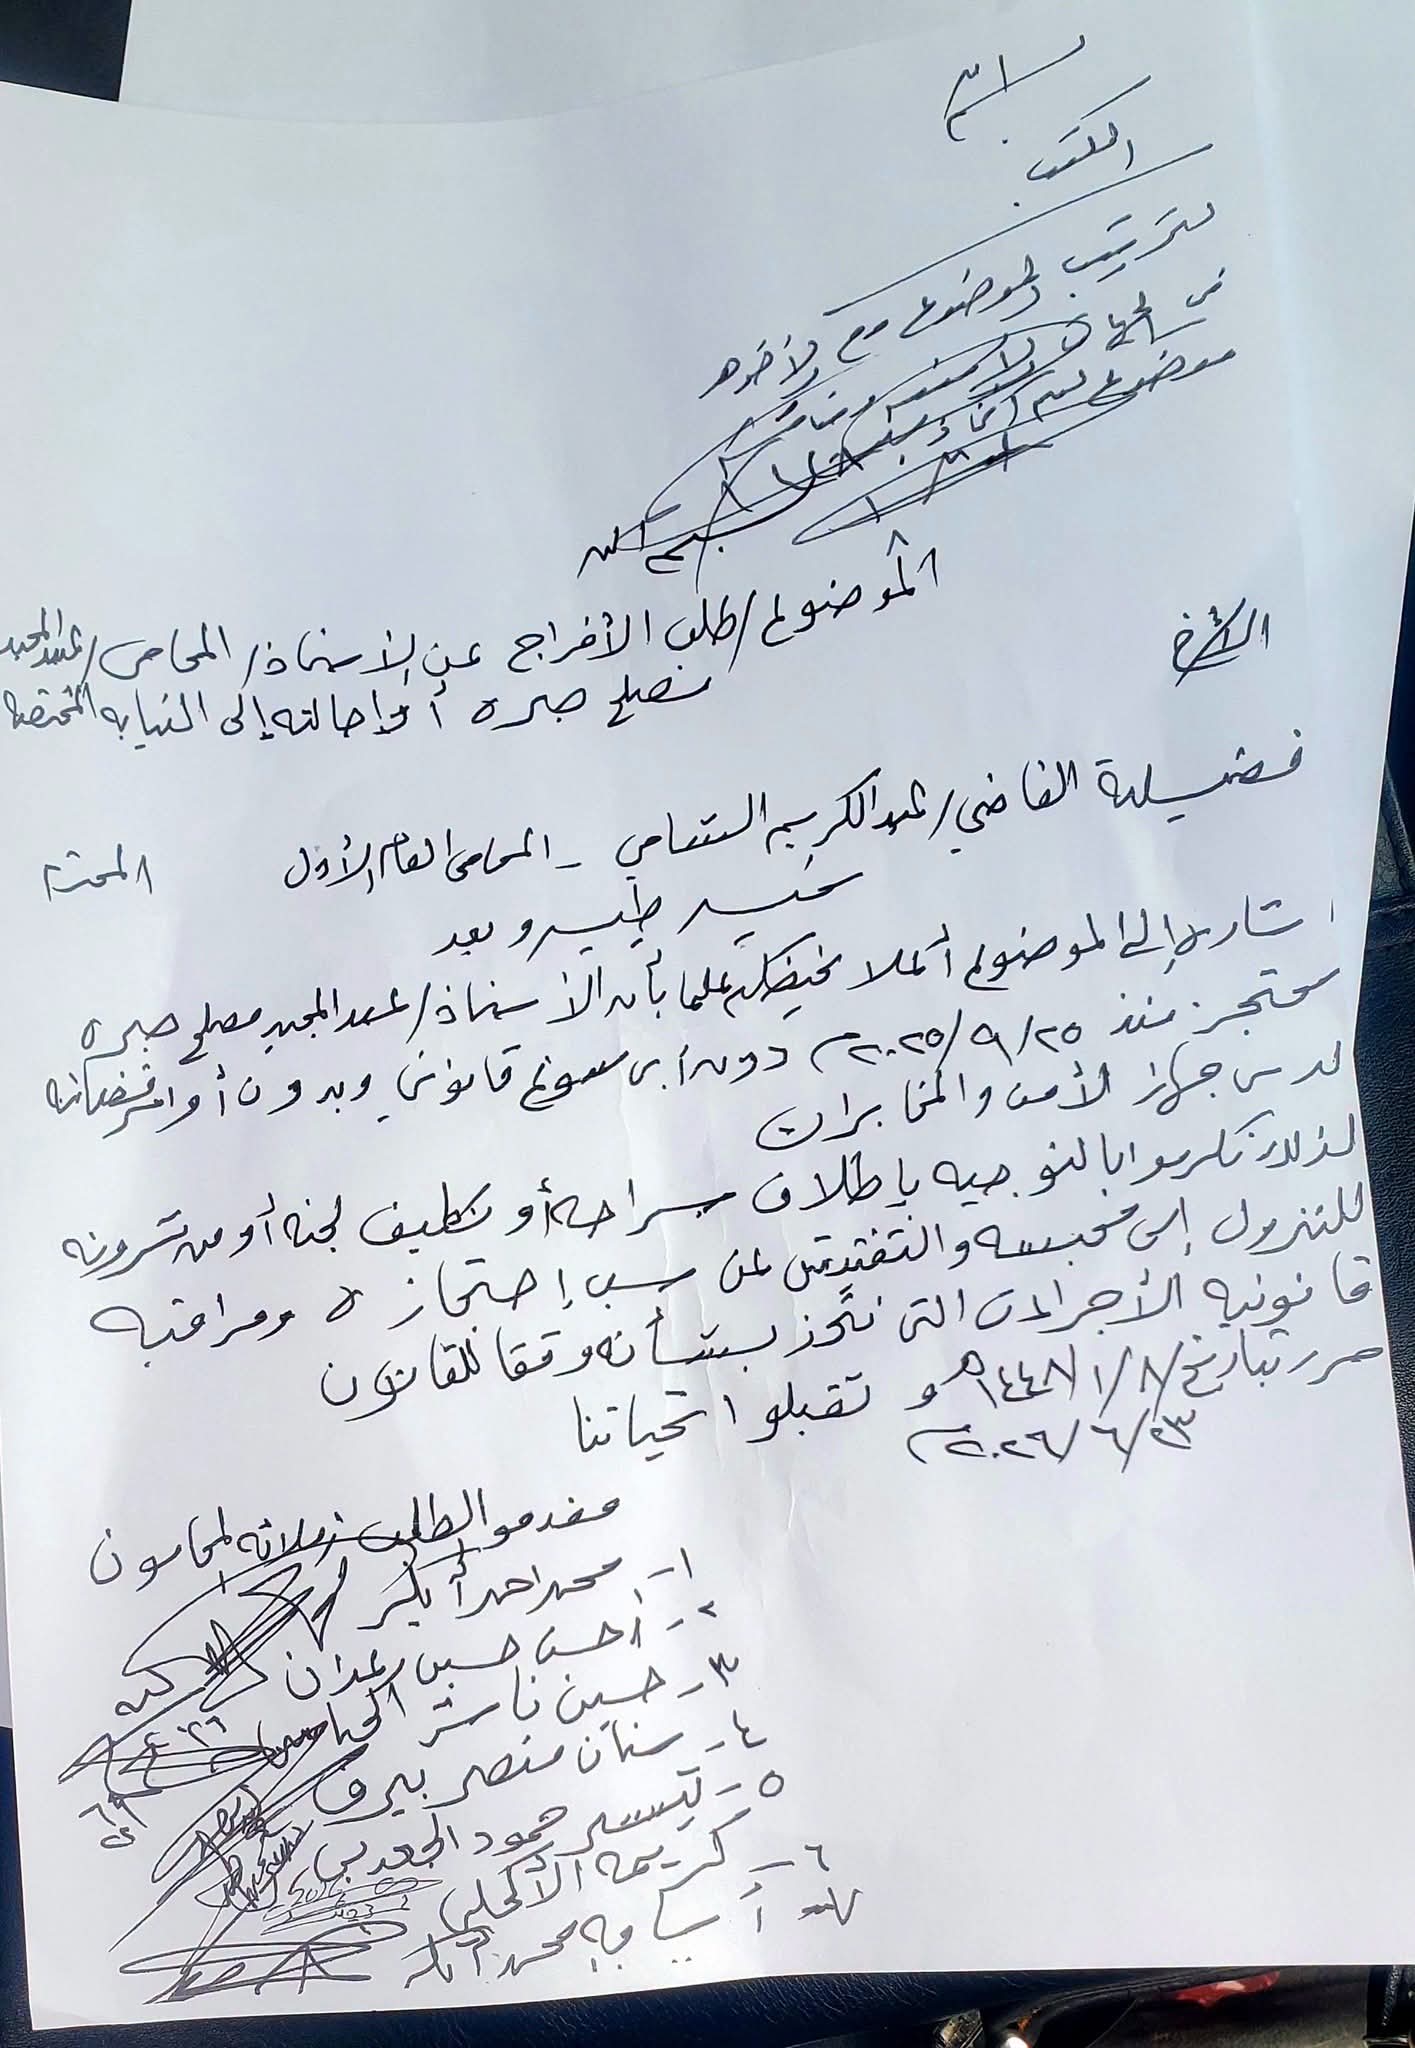 المكتب
لترتيب الموضوع مع الأخوه
في الجهات الأمنية
موضوع
بسم الله
الموضوع/ طلب الأفراج عن الأستاذ/ المحامي/ عبدالمجيد
مصلح صبره أو إحالته إلى النيابه المختصه
الأخ
فضيلة القاضي/ عبدالكريم الشامي - المحامي العام الأول المحترم
تحيه طيبه وبعد
اشارة إلى الموضوع أعلا نحيطكم علما بأن الأستاذ/ عبدالمجيد مصلح صبره
محتجز منذ ٢٠٢٥/٩/٢٥م دون أي مسوغ قانوني وبدون أوامر قضائيه
لدى جهاز الأمن والمخابرات
لذلك تكرموا بالتوجيه بإطلاق سراحه أو تكليف لجنه أو من ترونه
للنزول إلى محبسه والتفتيش عن سبب إحتجازه ومراقبه
قانونيه الأجراءات التي تتخذ بشأنه وفقا للقانون
حرر بتاريخ ١٤٤٨/١/٨هـ وتقبلوا تحياتنا
٢٠٢٦/٦/٢٣م
مقدموا الطلب زملائه المحامون
١- محمد احمد أبكر
٢- أحسن حسين عمران
٣- حسين ناشر
٤- سنان منصر بيرق
٥- تيسير حمود الجعدبي
٦- كريمه الأكحلي
آسيا محمد